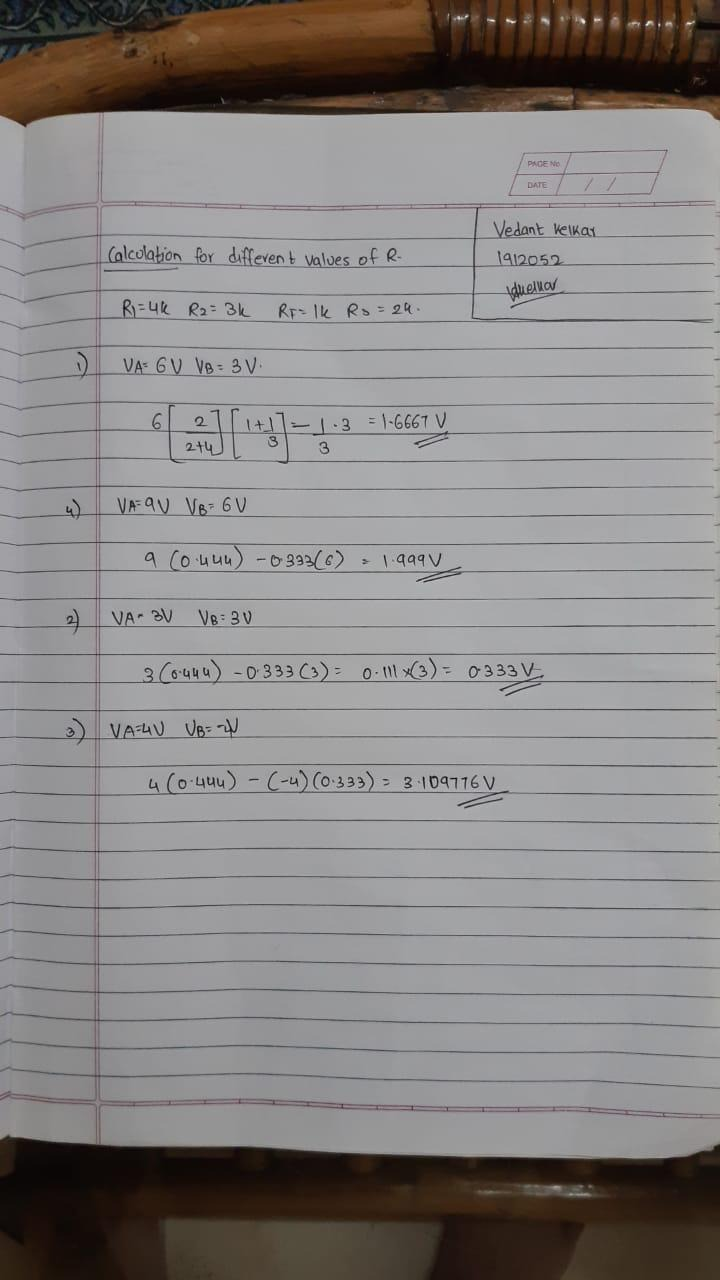 PAGE No.
DATE / /
Vedant Kelkar
1912052
Calculation for different values of R.
R1=4k R2=3k RF=1k R3=2k.
1) VA=6V VB=3V.
6[2/2+4][1+1/3]-1/3·3 = 1.6667 V
4) VA=9V VB=6V
9(0.444)-0.333(6) = 1.999V
2) VA=3V VB=3V
3(0.444)-0.333(3)= 0.111×(3)= 0.333V
3) VA=4V VB=
4(0.444)-(-4)(0.333)= 3.109776V